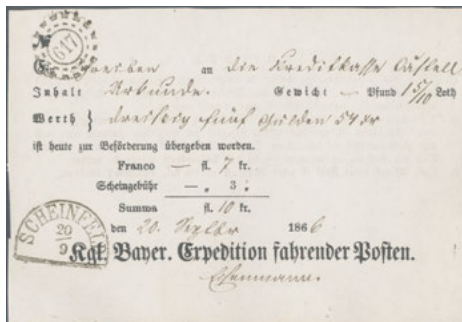 617
Schreiben an die Kreditkasse Castell
Inhalt Urkunde. Gewicht — Pfund 1 5/10 Loth
Werth } dreißig fünf Gulden 54 xr
ist heute zur Beförderung übergeben worden.
Franco — fl. 7 kr.
Scheingebühr — „ 3 „
Summa fl. 10 kr.
den 20. Septbr 1866
SCHEINFELD
20
9
Kgl. Bayer. Expedition fahrender Posten.